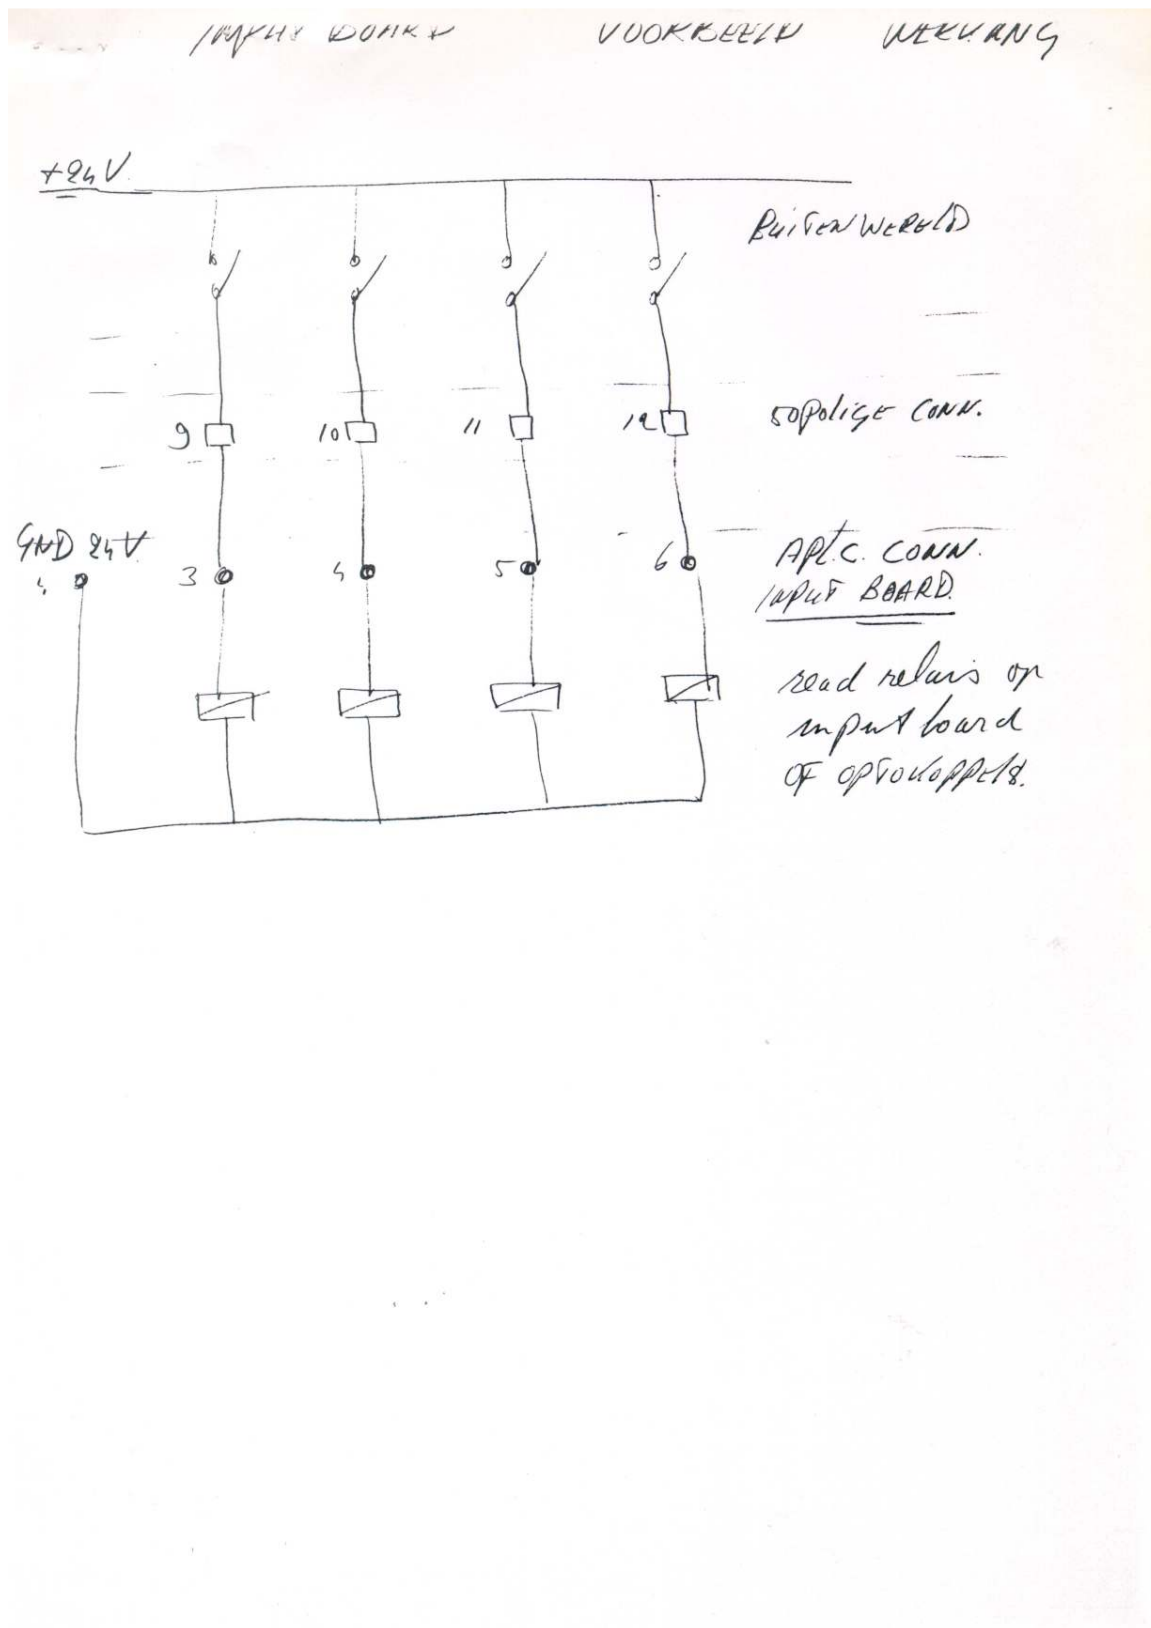 INPUT BOARD VOORBEELD WERKING
+24V
BUITENWERELD
9 10 11 12 50 POLIGE CONN.
GND 24V
3 4 5 6 APL.C. CONN.
INPUT BOARD.
read relais op
input board
OF OPTOKOPPELS.